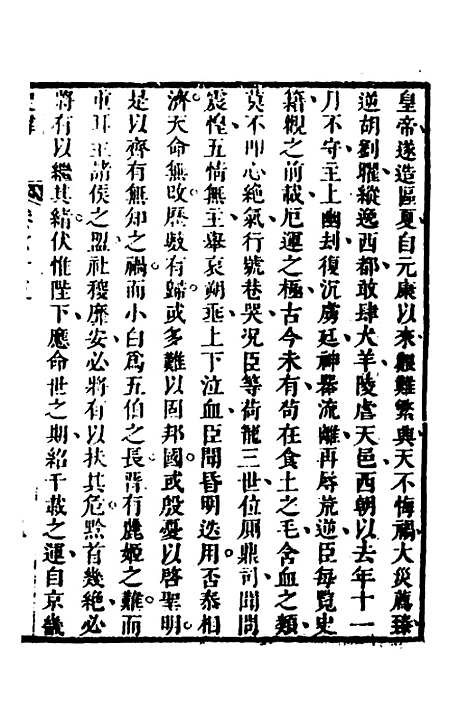 皇帝遂造區夏自元康以來艱難繁興天不悔禍大災薦臻
逆胡劉曜縱逸西都敢肆犬羊陵虐天邑西朝以去年十一
月不守主上幽刦復沉虜廷神器流離再辱荒逆臣每覽史
籍觀之前載厄運之極古今未有苟在食土之毛含血之類
莫不叩心絶氣行號巷哭况臣等荷寵三世位厠鼎司聞問
震惶五情無主舉哀朔垂上下泣血臣聞昏明迭用否泰相
濟天命無改歷數有歸或多難以固邦國或殷憂以啓聖明
是以齊有無知之禍而小白爲五伯之長晉有麗姬之難而
重耳主諸侯之盟社稷靡安必將有以扶其危黔首幾絶必
將有以繼其緒伏惟陛下應命世之期紹千載之運自京畿